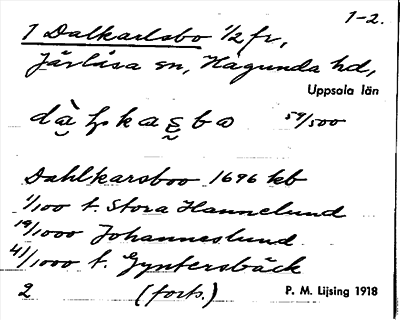 1-2.
1 Dalkarlsbo 1/2 fr,
Järlåsa sn, Hagunda hd,
Uppsala län
59/500
Dahlkarsboo 1696 kb
1/100 t. Stora Hannelund
19/1000 Johanneslund
41/1000 t. Gyntersbäck
2 (forts.) P. M. Lijsing 1918